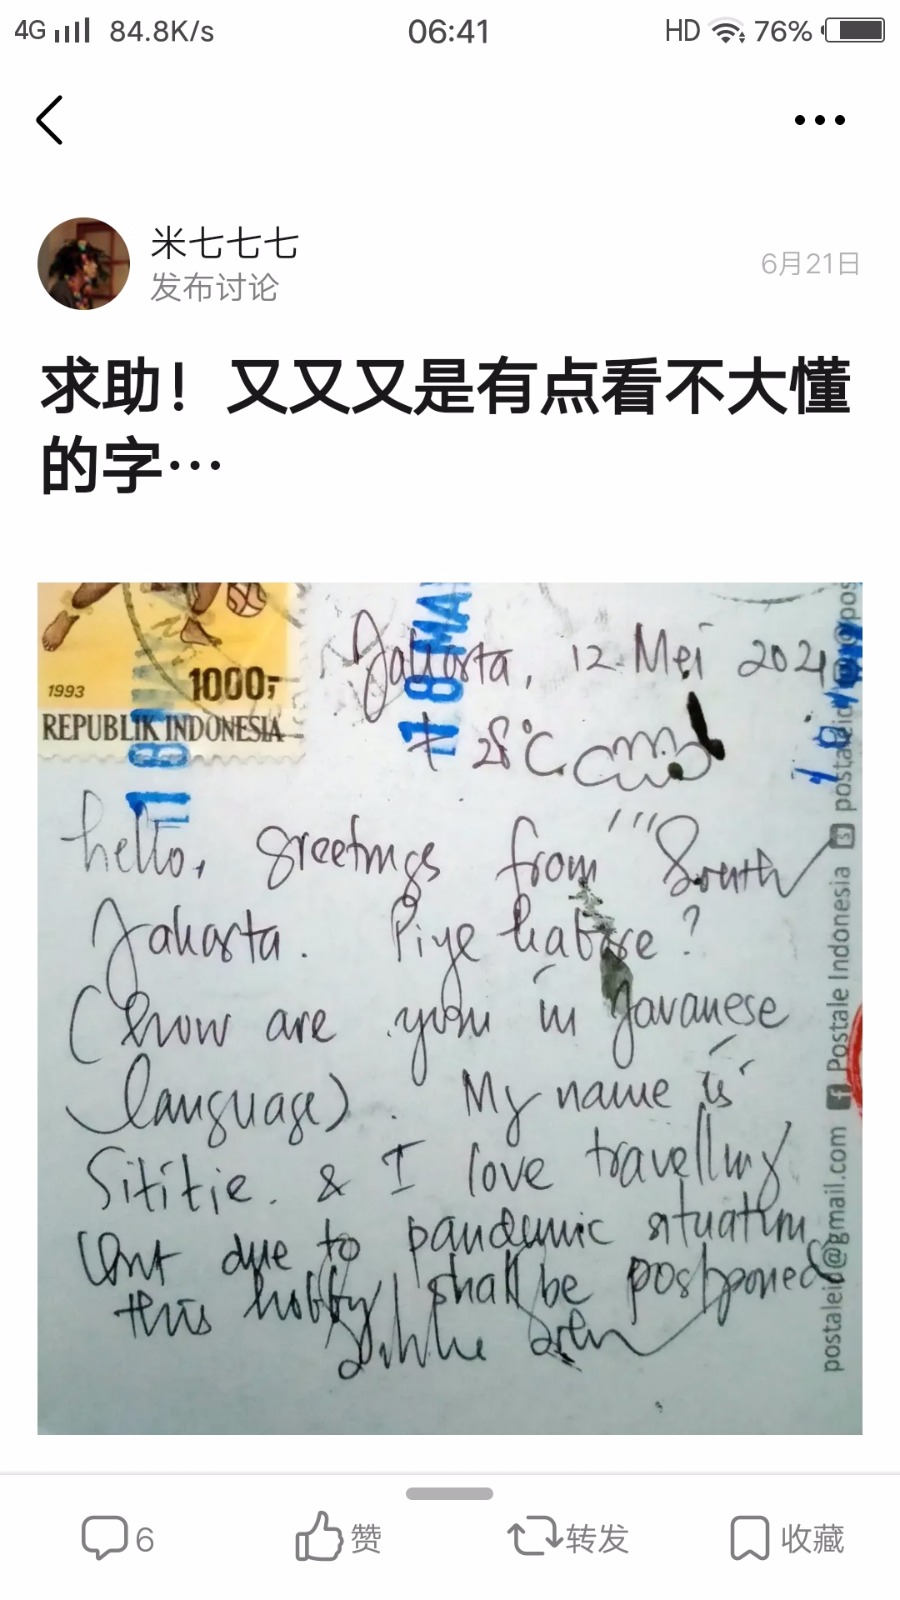 4G 84.8K/s 06:41 HD 76%
米七七七
发布讨论
6月21日
求助！又又又是有点看不大懂
的字…
1993
1000;-
REPUBLIK INDONESIA
18 MA
Jakarta, 12 Mei 2021
± 28°C
hello, greetings from South
Jakarta. Piye kabare?
(how are you in Javanese
language). My name is
Sititie. & I love travelling
but due to pandemic situation
this hobby shall be postponed
postaleid@gmail.com Postale Indonesia postaleid
6
赞
转发
收藏